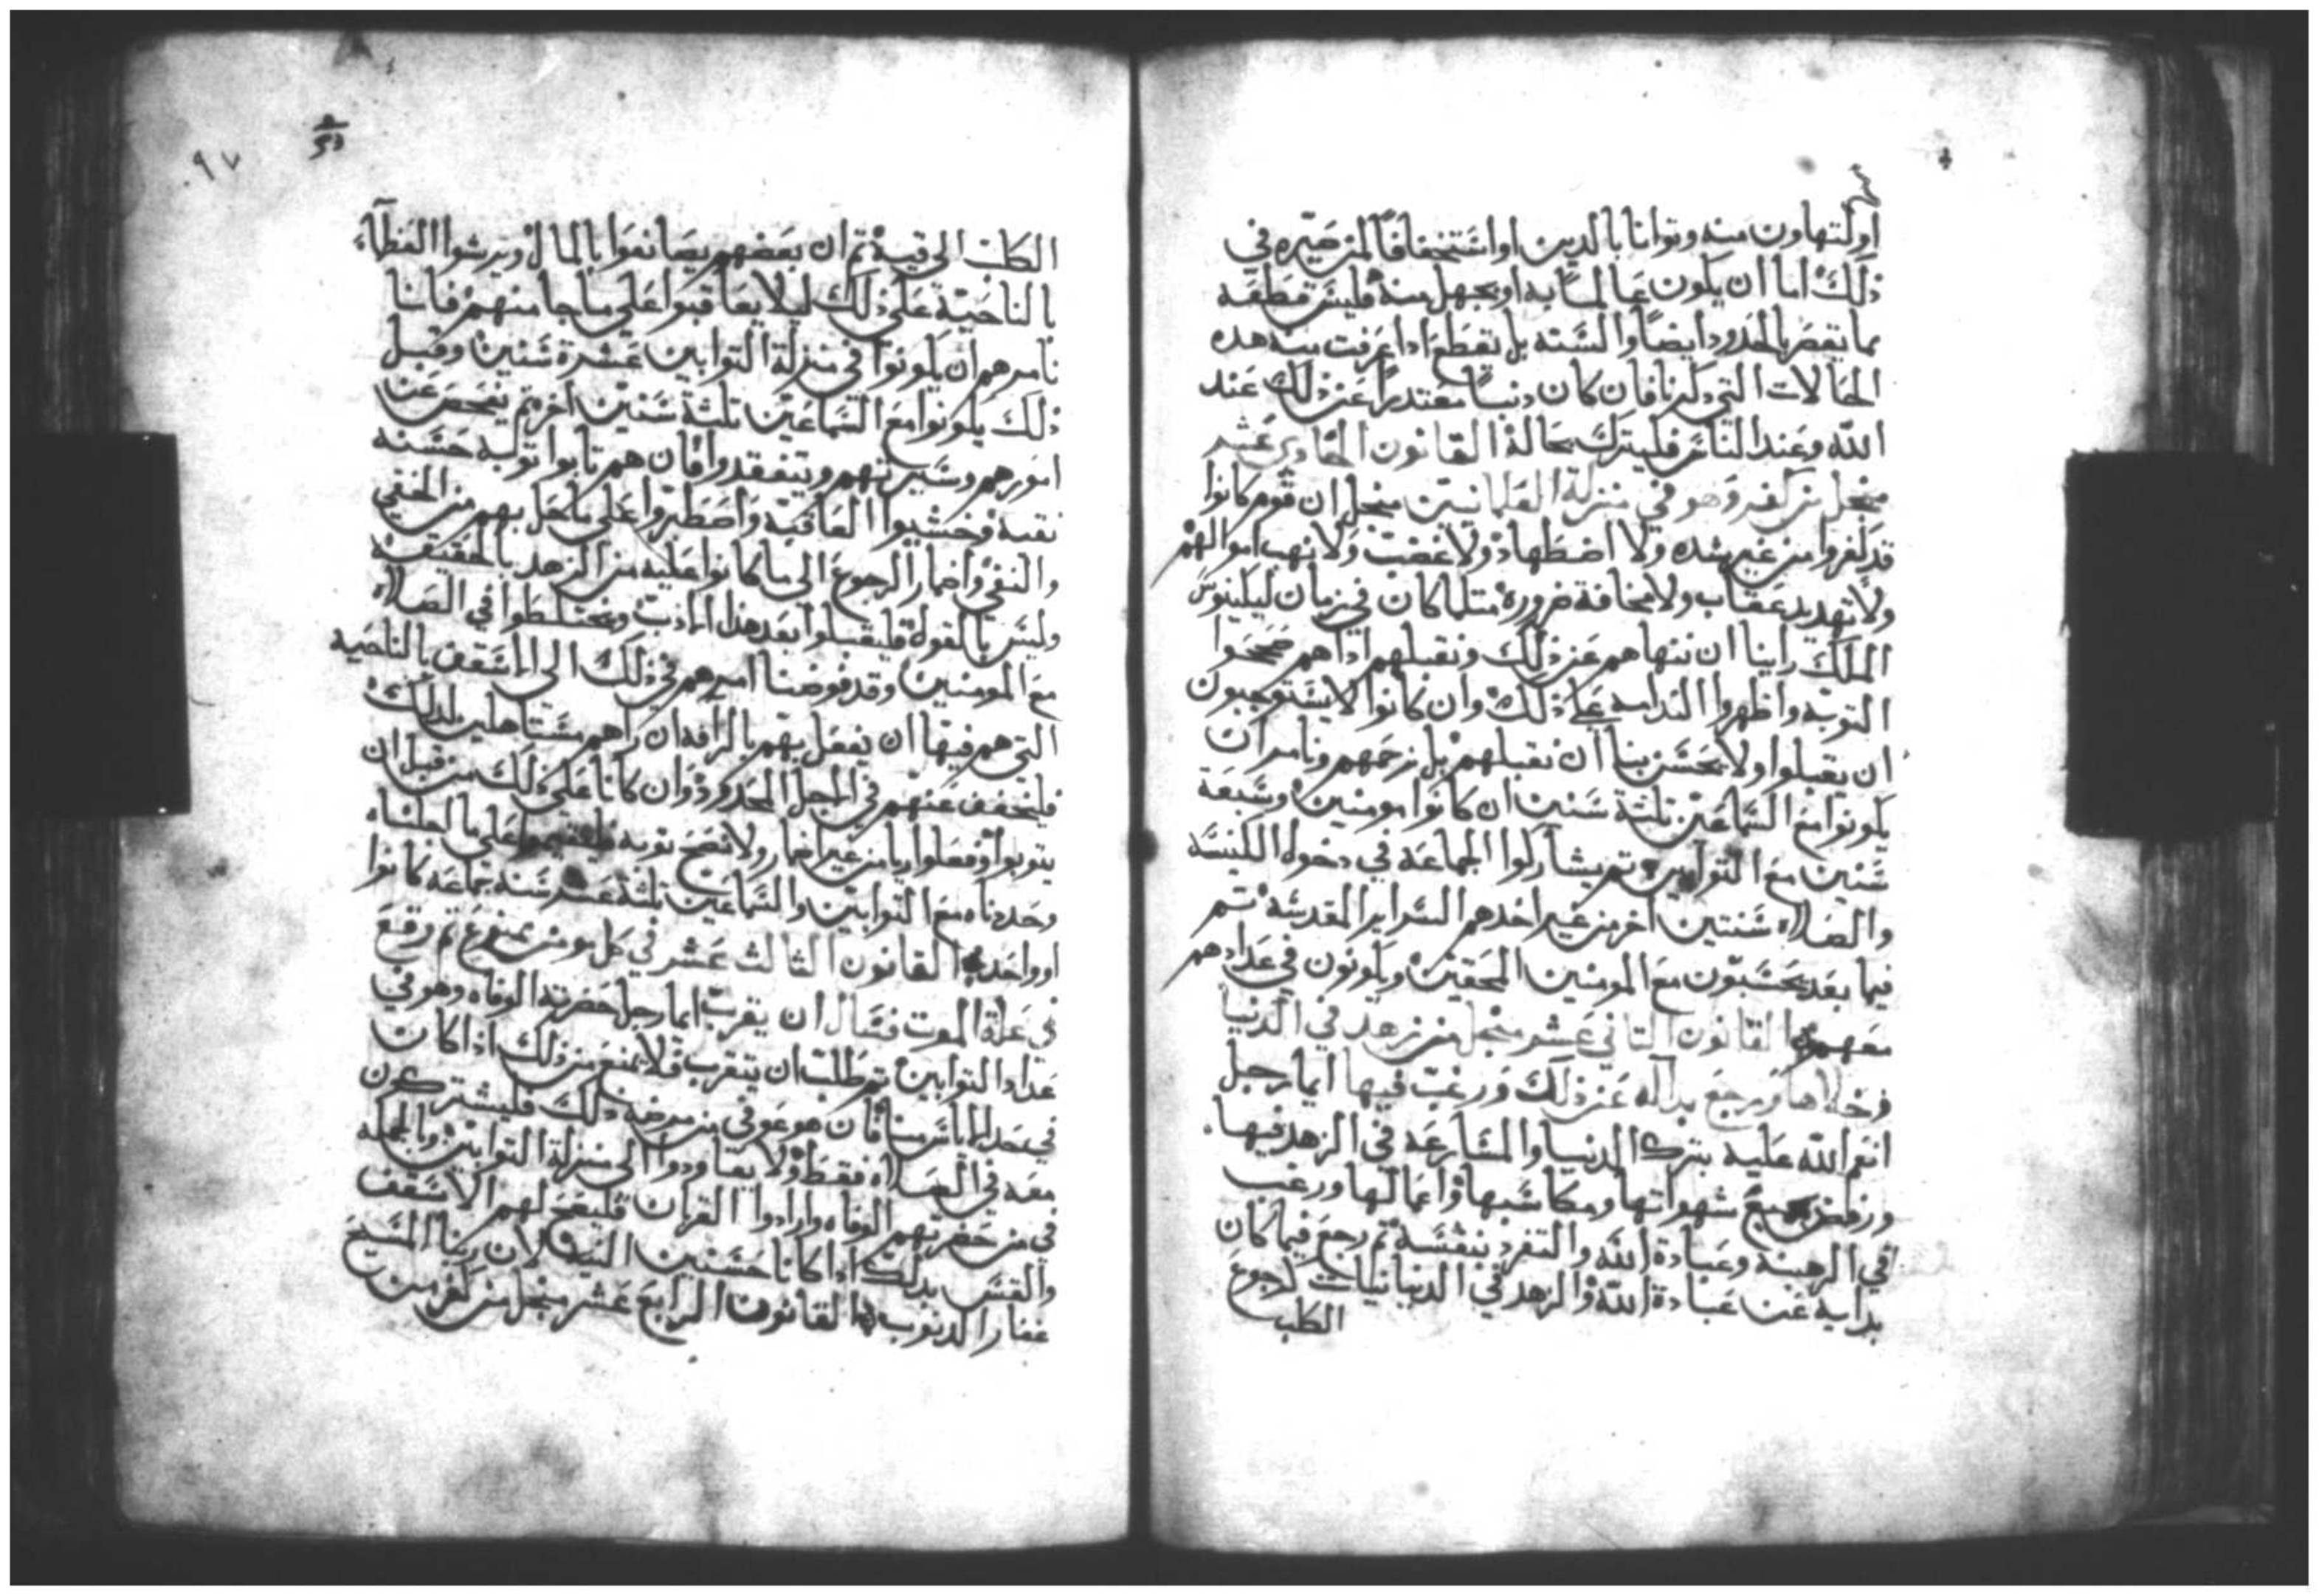 او لتهاون منه وتوانا بالدين او استخفافًا لمن صيره في
ذلك اما ان يكون عالمًا به او بجهل منه فليس قطعه
مما يقصر بالحدود ايضًا والسنه بل يقطع اذا عرفت منه هده
الحالات التي دكرنا فان كان دنبًا معتدرًا عن ذلك عند
الله وعند الناس فليترك بحالة القانون الحادي عشر
منجل من كفر وهو في منزلة العلمانيين منجل ان قوم كانوا
قد كفروا من غير شده ولا اضطهاد ولا غضب ولا نهب اموالهم
ولا تهديد عقاب ولا مخافة ضرورة متلما كان في زمان ليكينوس
الملك راينا ان ننهاهم عن ذلك ونقبلهم اداهم صححوا
التوبه واظهروا الندامه علي ذلك وان كانوا لا يستوجبون
ان يقبلوا ولا يحسن بنا ان نقبلهم بل نرحمهم ونامر ان
يكونوا مع السماعين تلثة سنين ان كانوا مومنين وسبعة
سنين مع التوابين تم يشاركوا الجماعه في دخول الكنيسه
والصلاه سنتين اخر من غير اخدهم السراير المقدسه تم
فيما بعد يحسبون مع المومنين المحقين ويكونون في عدادهم
معهم القانون التاني عشر منجل من زهد في الدنيا
وخلاها ويرجع بداله عن ذلك ورغب فيها ايما رجل
انعم الله عليه بترك الدنيا والمسارعه في الزهد فيها
ورفض جميع شهواتها ومكاسبها واعمالها ورغب
في الرهبنه وعبادة الله والتفرد بنفسه تم رجع فيما كان
بدابه عن عبادة الله والزهد في الدنيانيات كرجوع
الكلب
٩٧
الكلب الي قيه تم ان بعضهم يصانعوا بالمال ويرشوا العظآء
بالناحيه علي ذلك ليلا يعاقبوا علي ما جا منهم فاننا
نامرهم ان يكونوا في منزلة التوابين عشرة سنين وقبل
ذلك يكونوا مع السماعين تلثة سنين اخر تم يفحص عن
امورهم وسيرتهم ويتفقدوا فان هم تابوا توبه حسنه
نقيه وخشيوا العاقبه واصطبروا علي ما يحل بهم من الخفي
والنفي واضمار الرجوع الي ما كانوا عليه من الزهد بالحقيقه
وليس بالقول فليقبلوا بعد هذا الادب ويختلطوا في الصلاه
مع المومنين وقد فوضنا امرهم في ذلك الي الاسقف بالناحيه
التي هم فيها ان يفعل بهم بالرافه ان راهم مستاهلين لدلك
فليخفف عنهم في الاجل المحدود وان كانا علي ذلك من قبل ان
يتوبوا وفعلوا ريا من غير اضمار ولا تصح توبه فليقيموا علي ما اعلناه
وحددناه مع التوابين والسماعين تلثة عشر سنه جماعه كانوا
او واحد القانون الثالث عشر في كل مومن ممنوع تم وقع
في علة الموت فسال ان يقرب ايما رجل حضرته الوفاه وهو في
عداد التوابين تم طلب ان يتقرب فلا يمنع من ذلك اذا كان
في حد الاياس منا فان هو عوفي من مرضه ذلك فليشترك
معه في الصلاه فقط ولا يعاودوا الي منزلة التوابين وبالجمله
في من حضرتهم الوفاه وارادوا القربان فليفتح لهم الاسقف
والقس بدلك ادا كانا حسنين النيه لان ربنا المسيح
غفار الدنوب القانون الرابع عشر منجل من كفر من